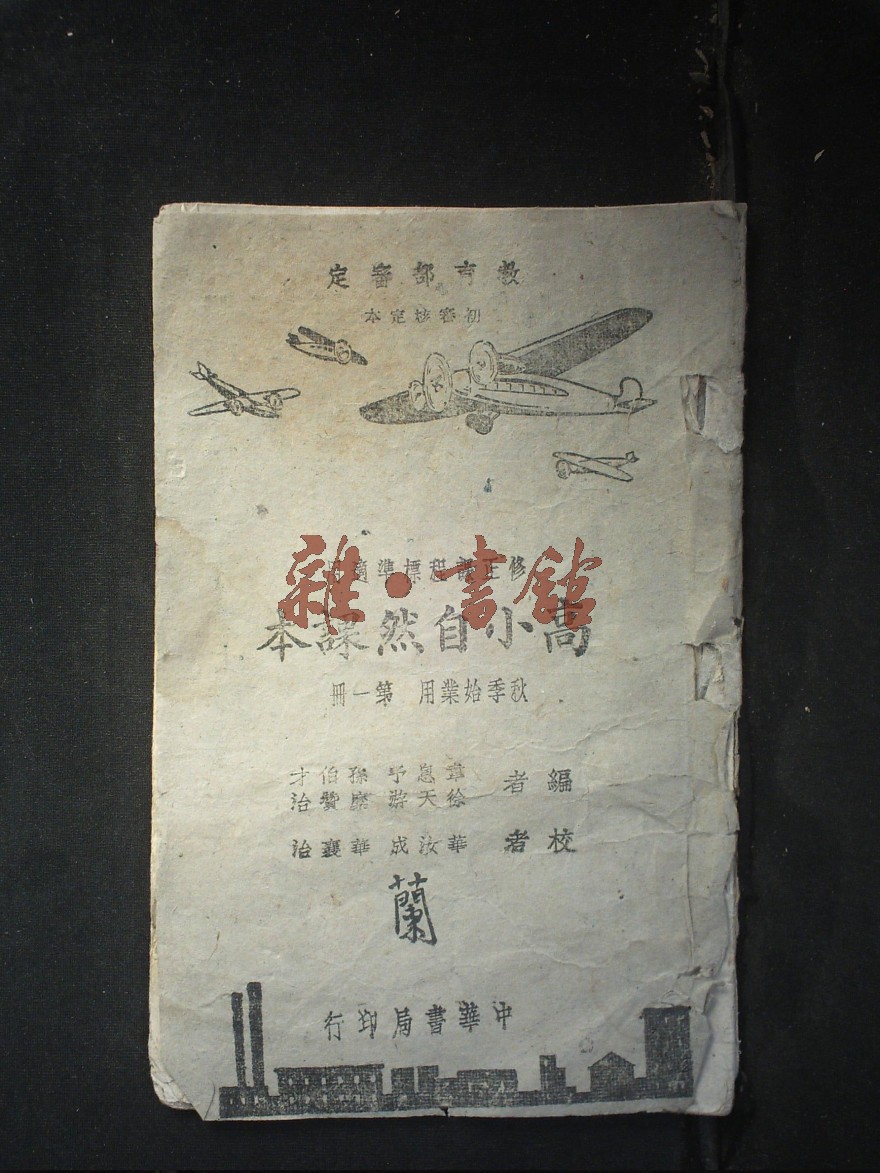 教育部審定
初審核定本
修正課程標準適用
高小自然課本
秋季始業用 第一冊
編者 韋息予 孫伯才
徐天游 糜贊治
校者 華汝成 華襄治
蘭
中華書局印行
雜·書館